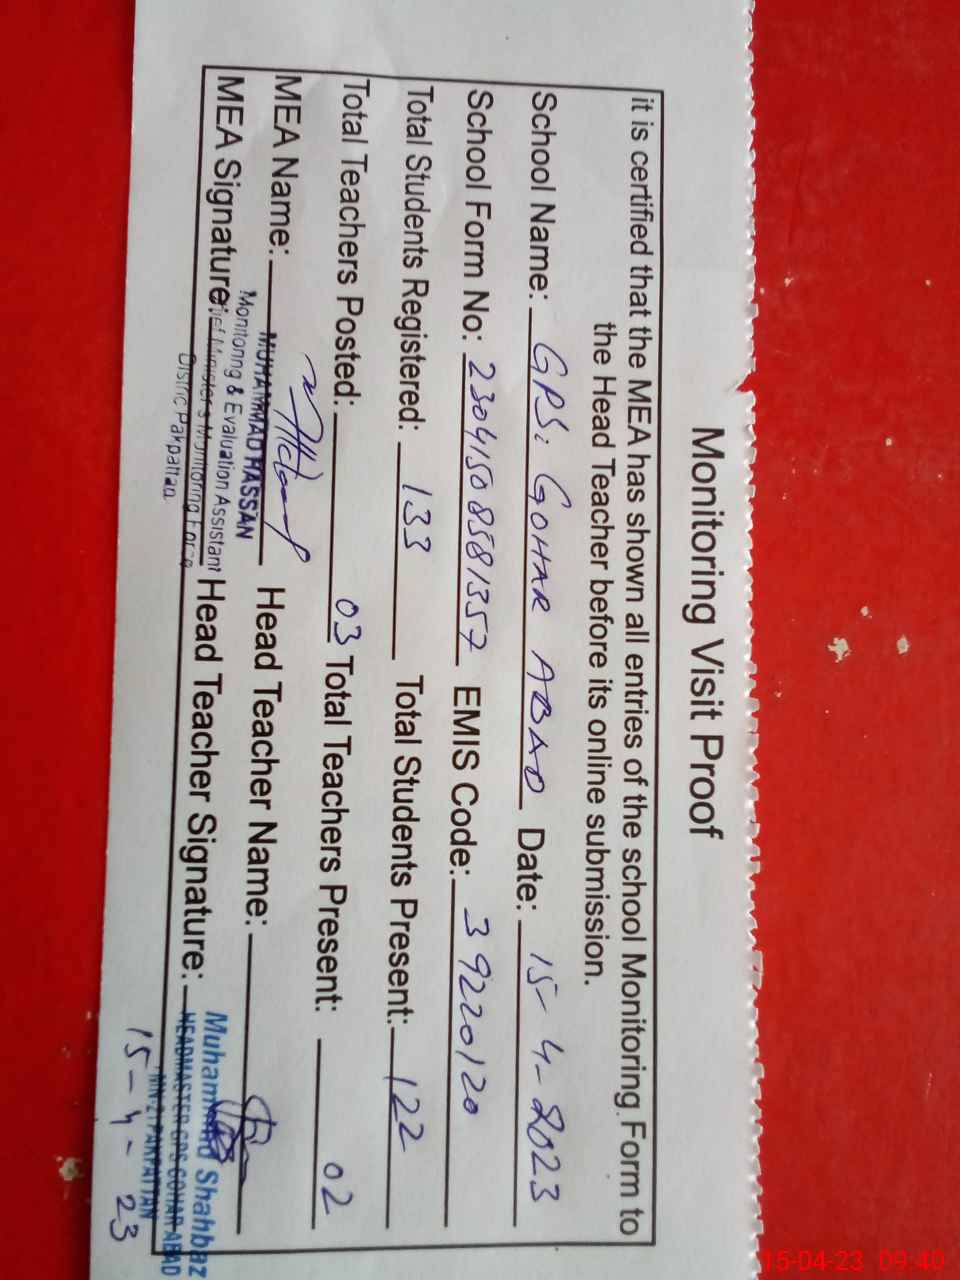 Monitoring Visit Proof
it is certified that the MEA has shown all entries of the school Monitoring Form to
the Head Teacher before its online submission.
School Name: GPS: GOHAR ABAD Date: 15-4-2023
School Form No: 23041508581357 EMIS Code: 39220120
Total Students Registered: 133 Total Students Present: 122
Total Teachers Posted: 03 Total Teachers Present: 02
MEA Name: Head Teacher Name:
MUHAMMAD HASSAN
Monitoring & Evaluation Assistant
MEA Signature: Head Teacher Signature:
Chief Minister's Monitoring Force
Distric Pakpattan
Muhammad Shahbaz
HEADMASTER GPS GOHAR ABAD
PAKPATTAN
15-4-23
15-04-23 09:40